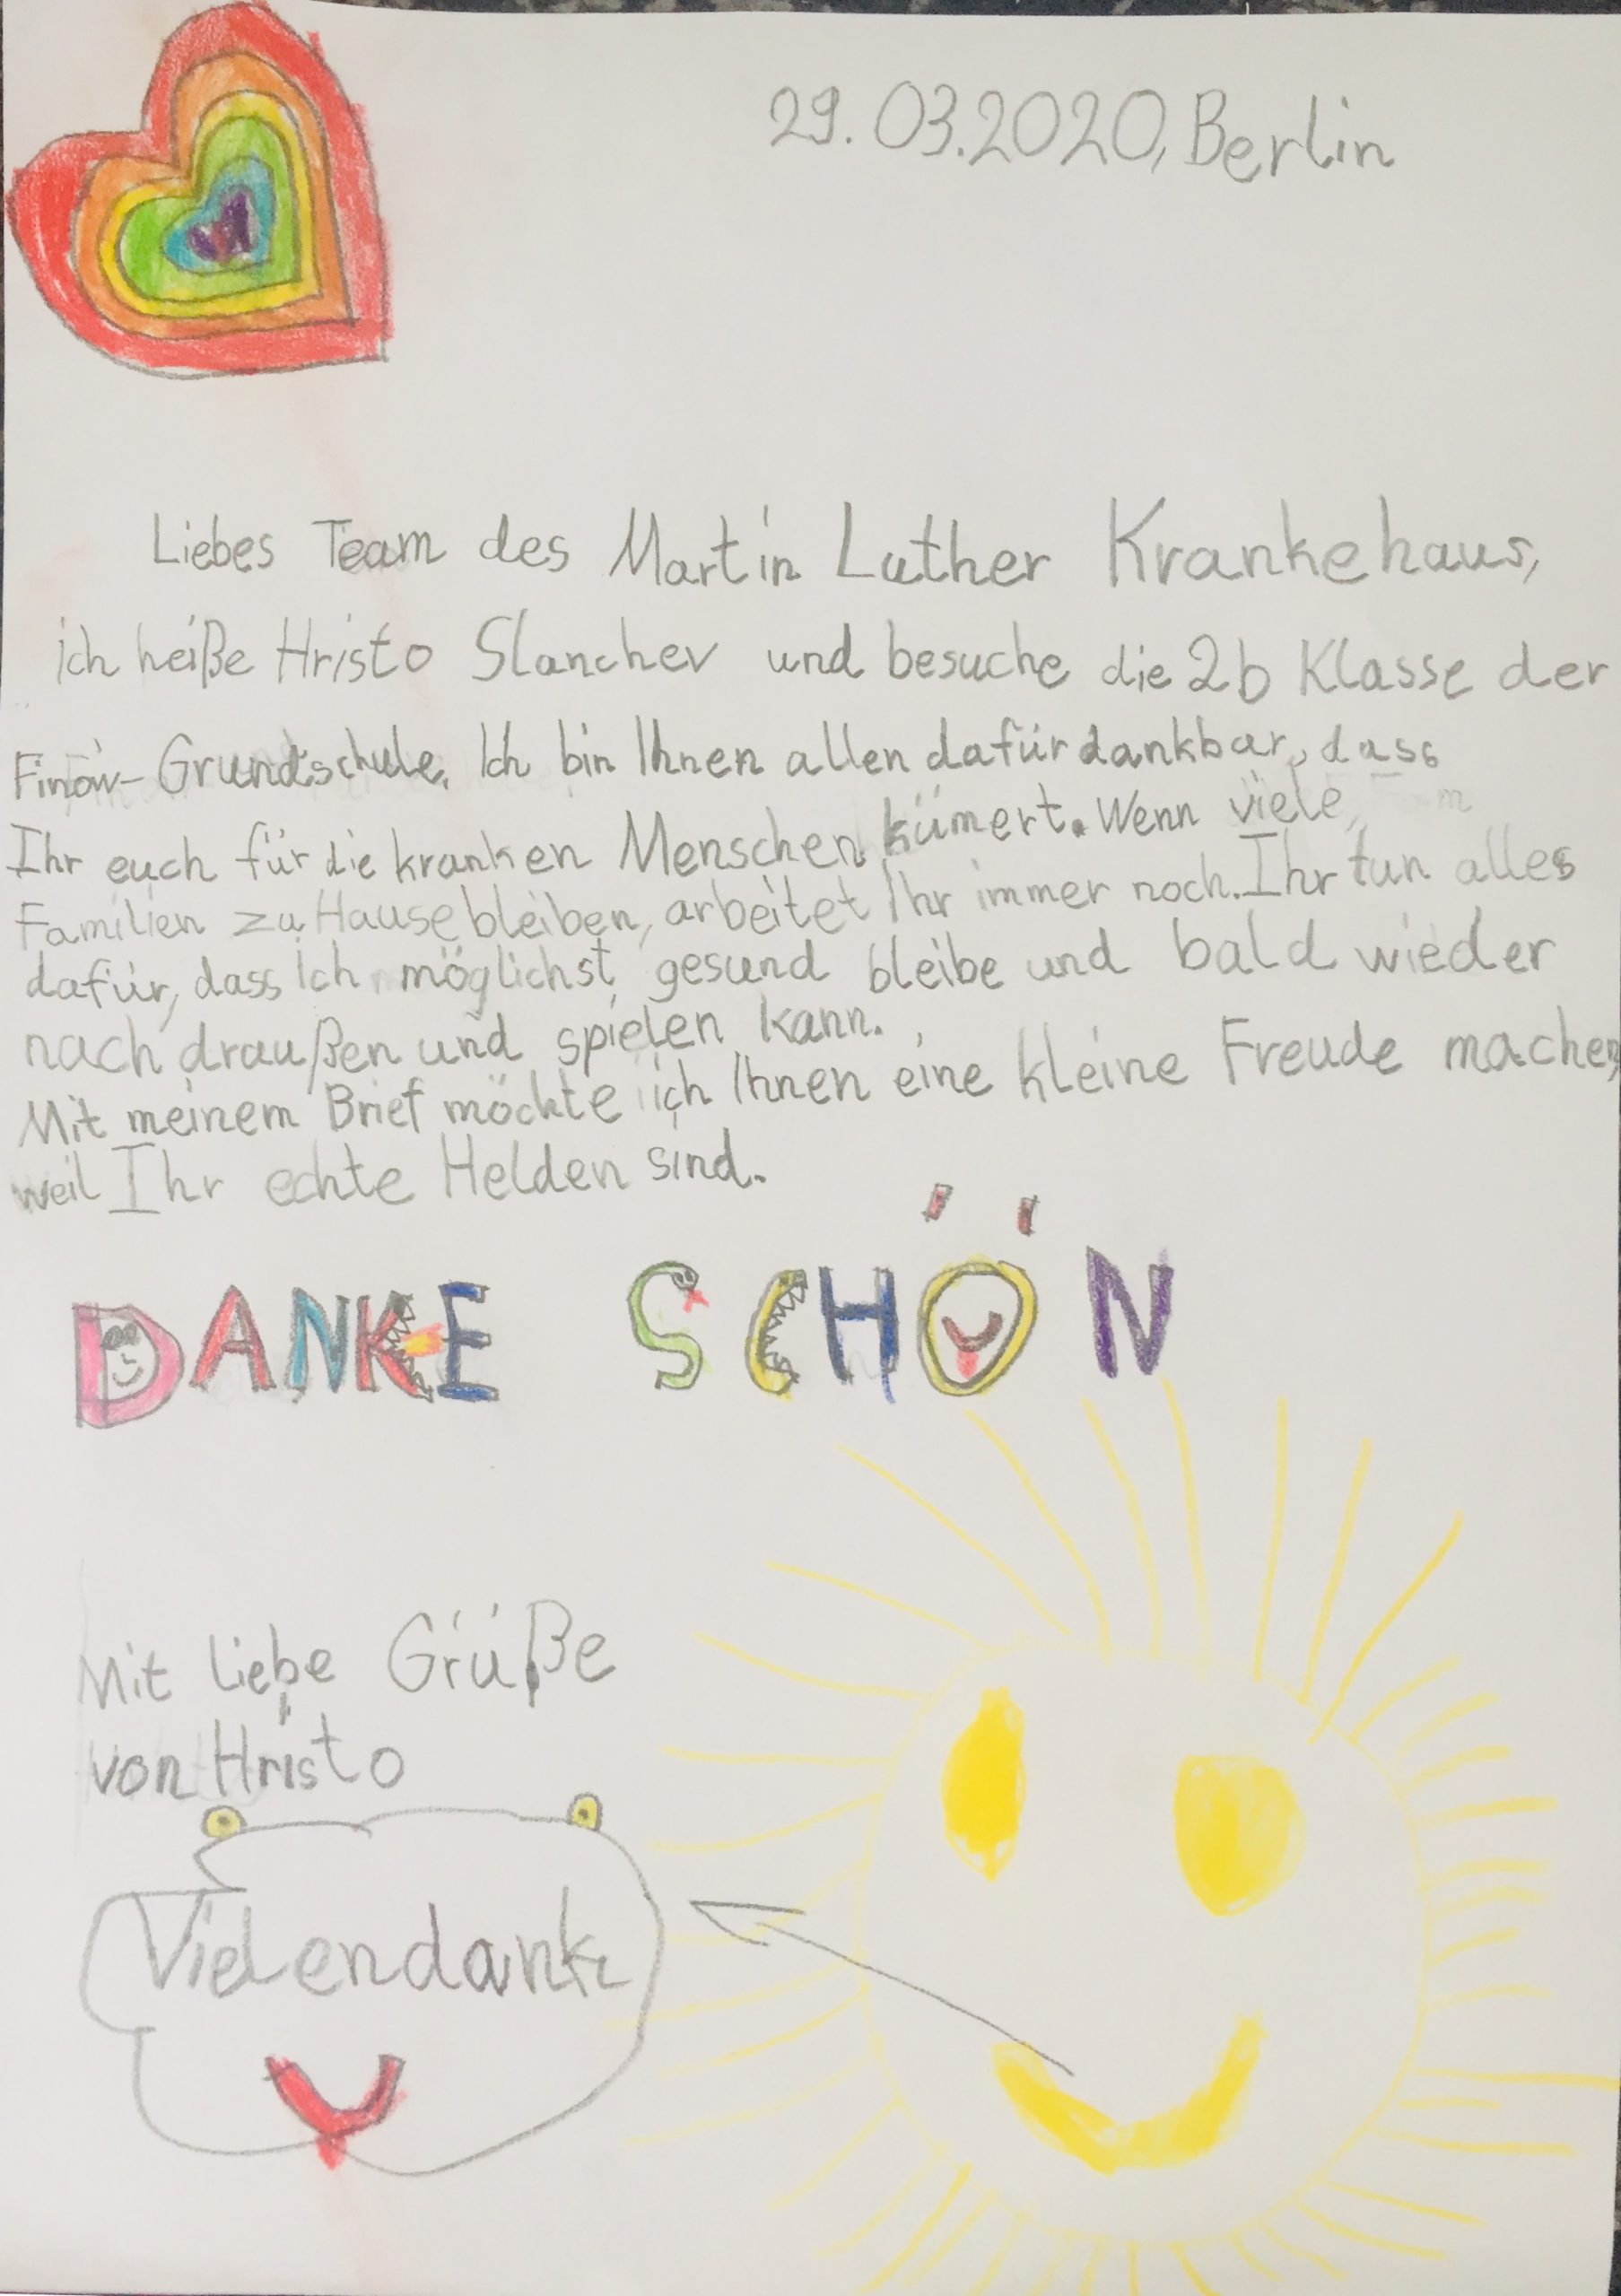 29.03.2020, Berlin
Liebes Team des Martin Luther Krankehaus,
ich heiße Hristo Slanchev und besuche die 2b Klasse der
Finow-Grundschule. Ich bin Ihnen allen dafür dankbar, dass
Ihr euch für die kranken Menschen kümert. Wenn viele
Familien zu Hause bleiben, arbeitet Ihr immer noch. Ihr tun alles
dafür, dass ich möglichst gesund bleibe und bald wieder
nach draußen und spielen kann.
Mit meinem Brief möchte ich Ihnen eine kleine Freude machen,
weil Ihr echte Helden sind.
DANKE SCHÖN
Mit liebe Grüße
von Hristo
Vielendank